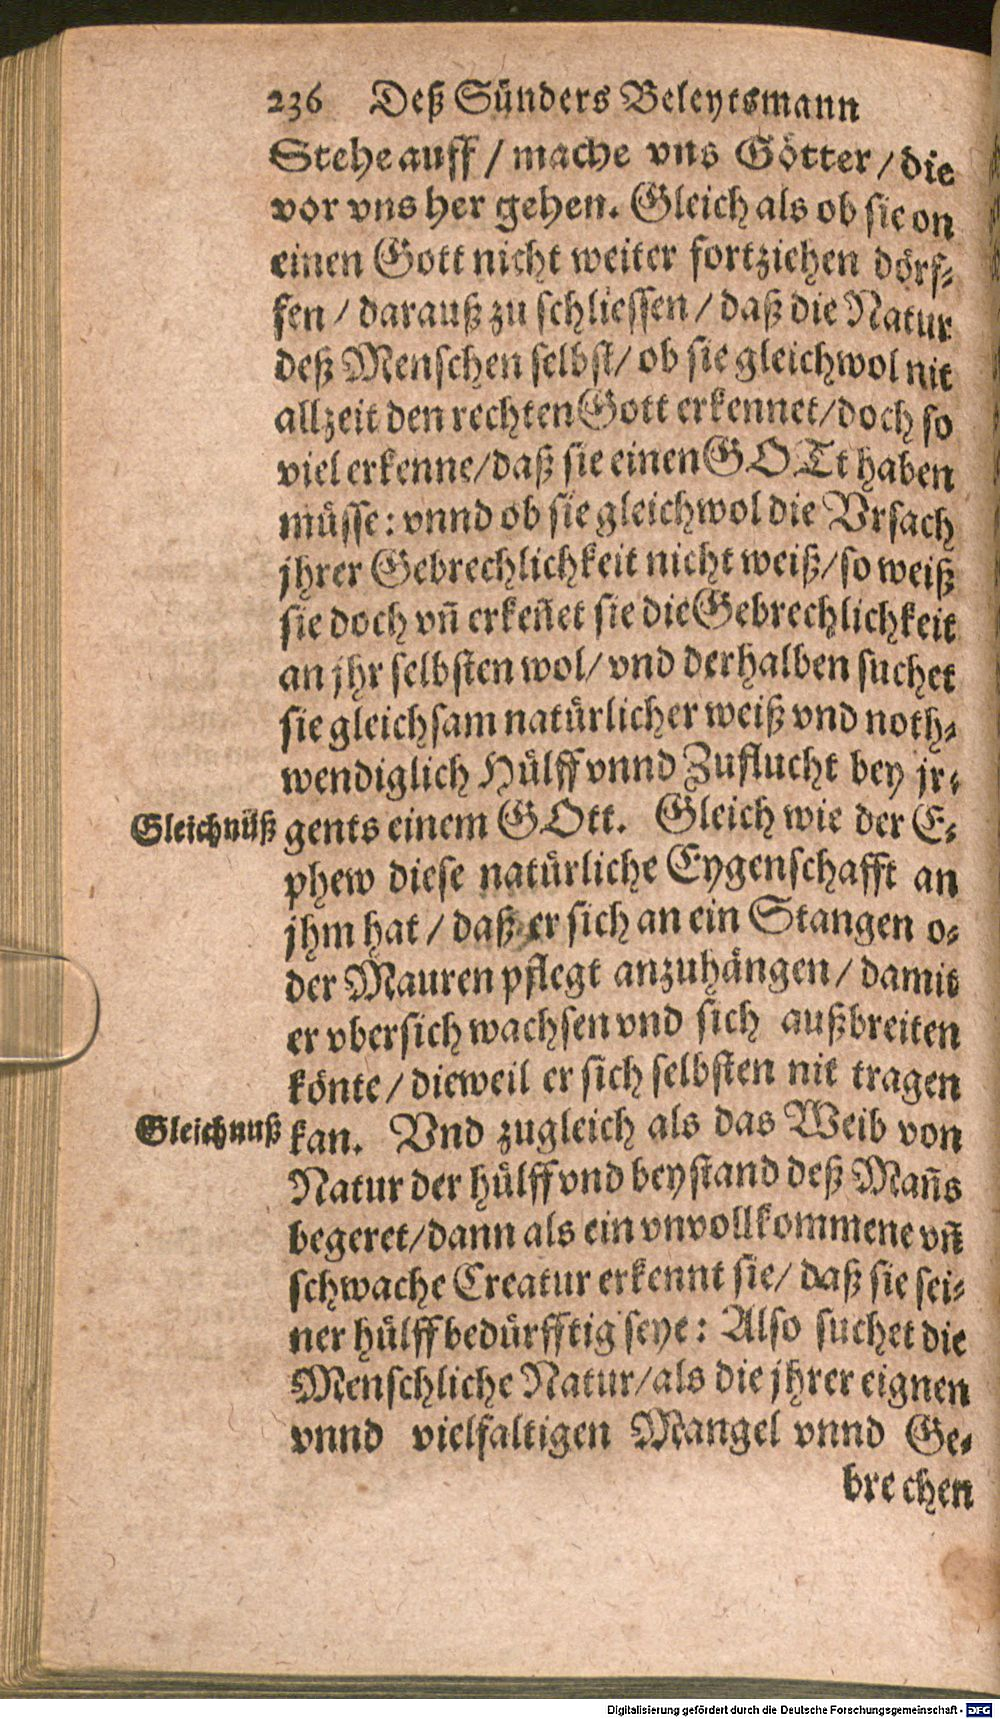 236 Deß Sünders Beleytsmann
Stehe auff / mache vns Götter / die
vor vns her gehen. Gleich als ob sie on
einen Gott nicht weiter fortziehen dörf-
fen / darauß zu schliessen / daß die Natur
deß Menschen selbst / ob sie gleichwol nit
allzeit den rechten Gott erkennet / doch so
viel erkenne / daß sie einen GOTt haben
müsse: vnnd ob sie gleichwol die Vrsach
jhrer Gebrechlichkeit nicht weiß / so weiß
sie doch vn̄ erken̄et sie die Gebrechlichkeit
an jhr selbsten wol / vnd derhalben suchet
sie gleichsam natürlicher weiß vnd noth-
wendiglich Hülff vnnd Zuflucht bey jr-
Gleichnüß gents einem GOtt. Gleich wie der E-
phew diese natürliche Eygenschafft an
jhm hat / daß er sich an ein Stangen o-
der Mauren pflegt anzuhängen / damit
er vbersich wachsen vnd sich außbreiten
könte / dieweil er sich selbsten nit tragen
Gleichnuß kan. Vnd zugleich als das Weib von
Natur der hülff vnd beystand deß Man̄s
begeret / dann als ein vnvollkommene vn̄
schwache Creatur erkennt sie / daß sie sei-
ner hülff bedürfftig seye: Also suchet die
Menschliche Natur / als die jhrer eignen
vnnd vielfaltigen Mangel vnnd Ge-
brechen
Digitalisierung gefördert durch die Deutsche Forschungsgemeinschaft - DFG